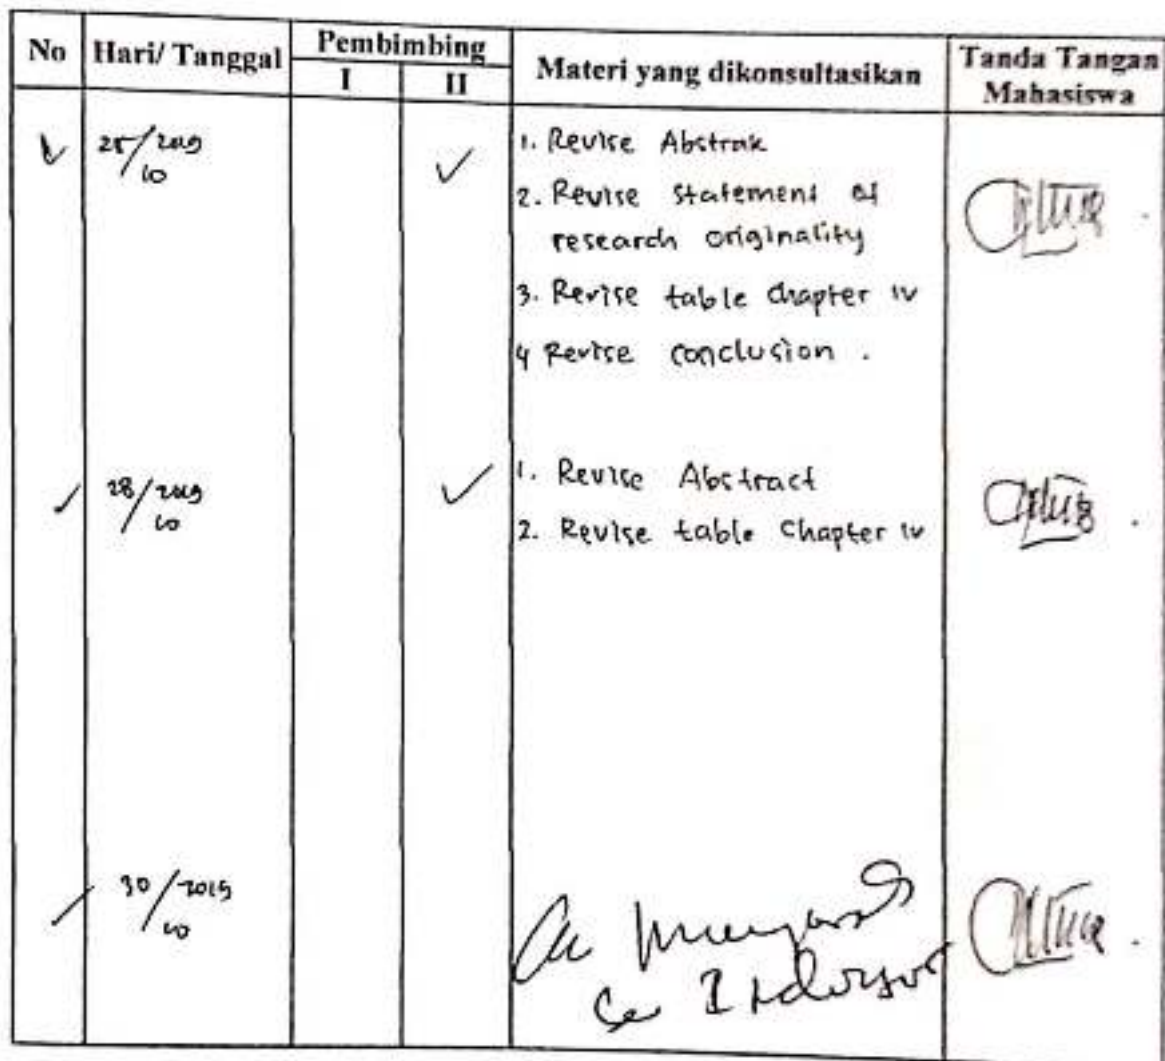 No Hari/ Tanggal Pembimbing Materi yang dikonsultasikan Tanda Tangan Mahasiswa
I II
25/2019 10
1. Revise Abstrak
2. Revise statement of
research originality
3. Revise table chapter IV
4 Revise conclusion .
28/2019 10
1. Revise Abstract
2. Revise table Chapter IV
30/2019 10